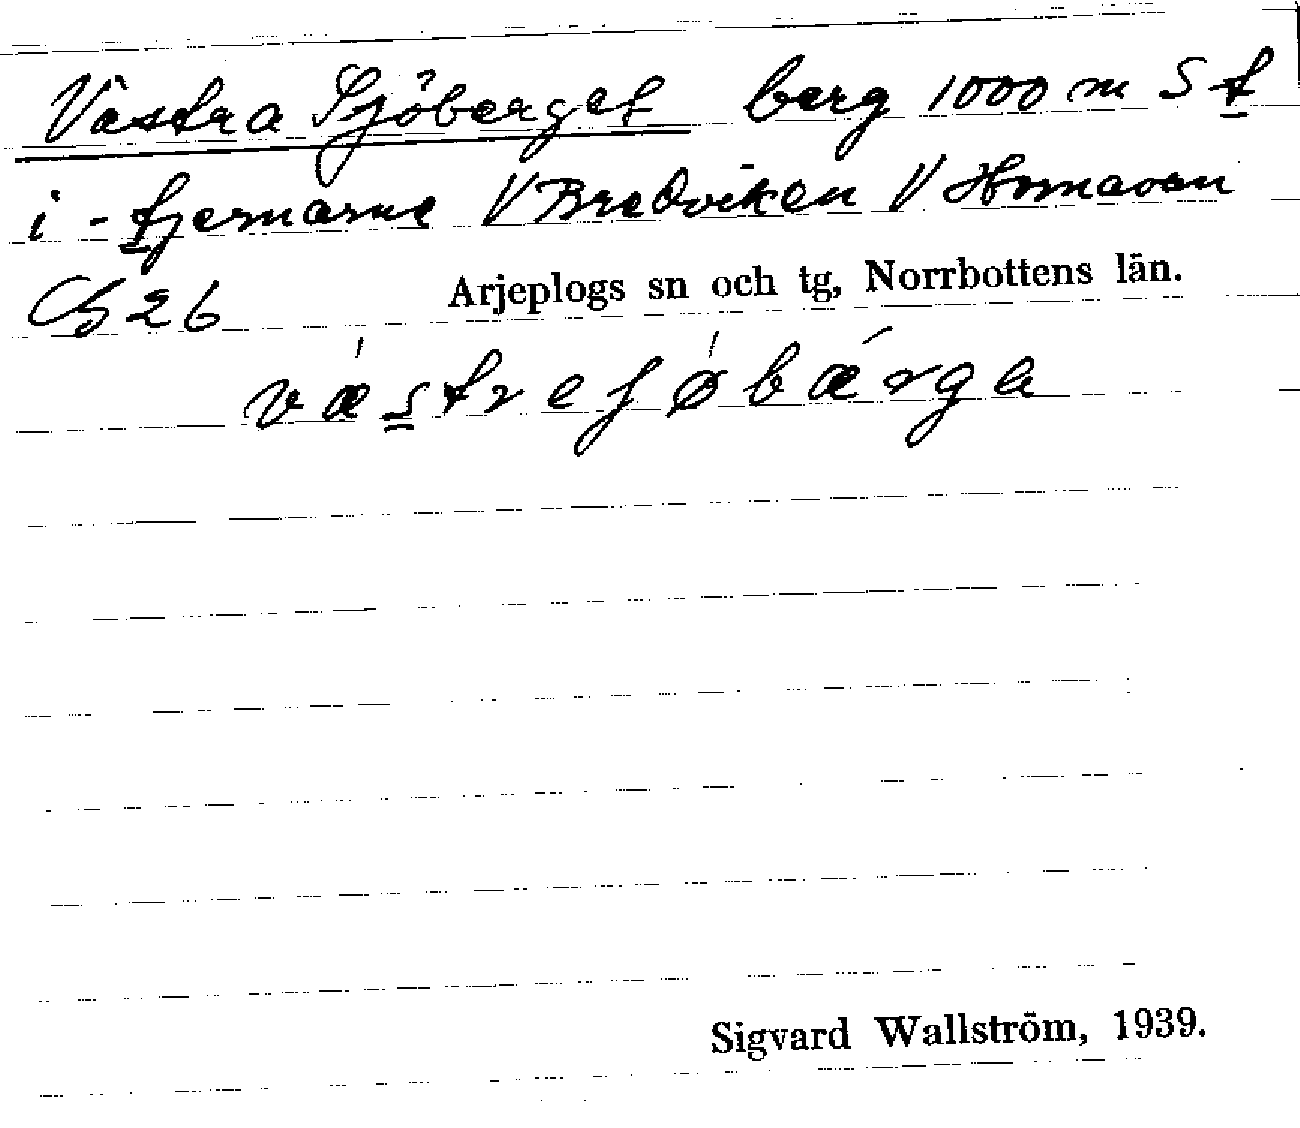 Västra Sjöberget berg 1000 m S t
i -tjernarne V Bredviken V Hornavan
26 Arjeplogs sn och tg, Norrbottens län.
Sigvard Wallström, 1939.